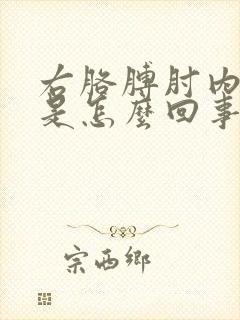 右胳膊肘内
是怎麼回事
宗西鄉